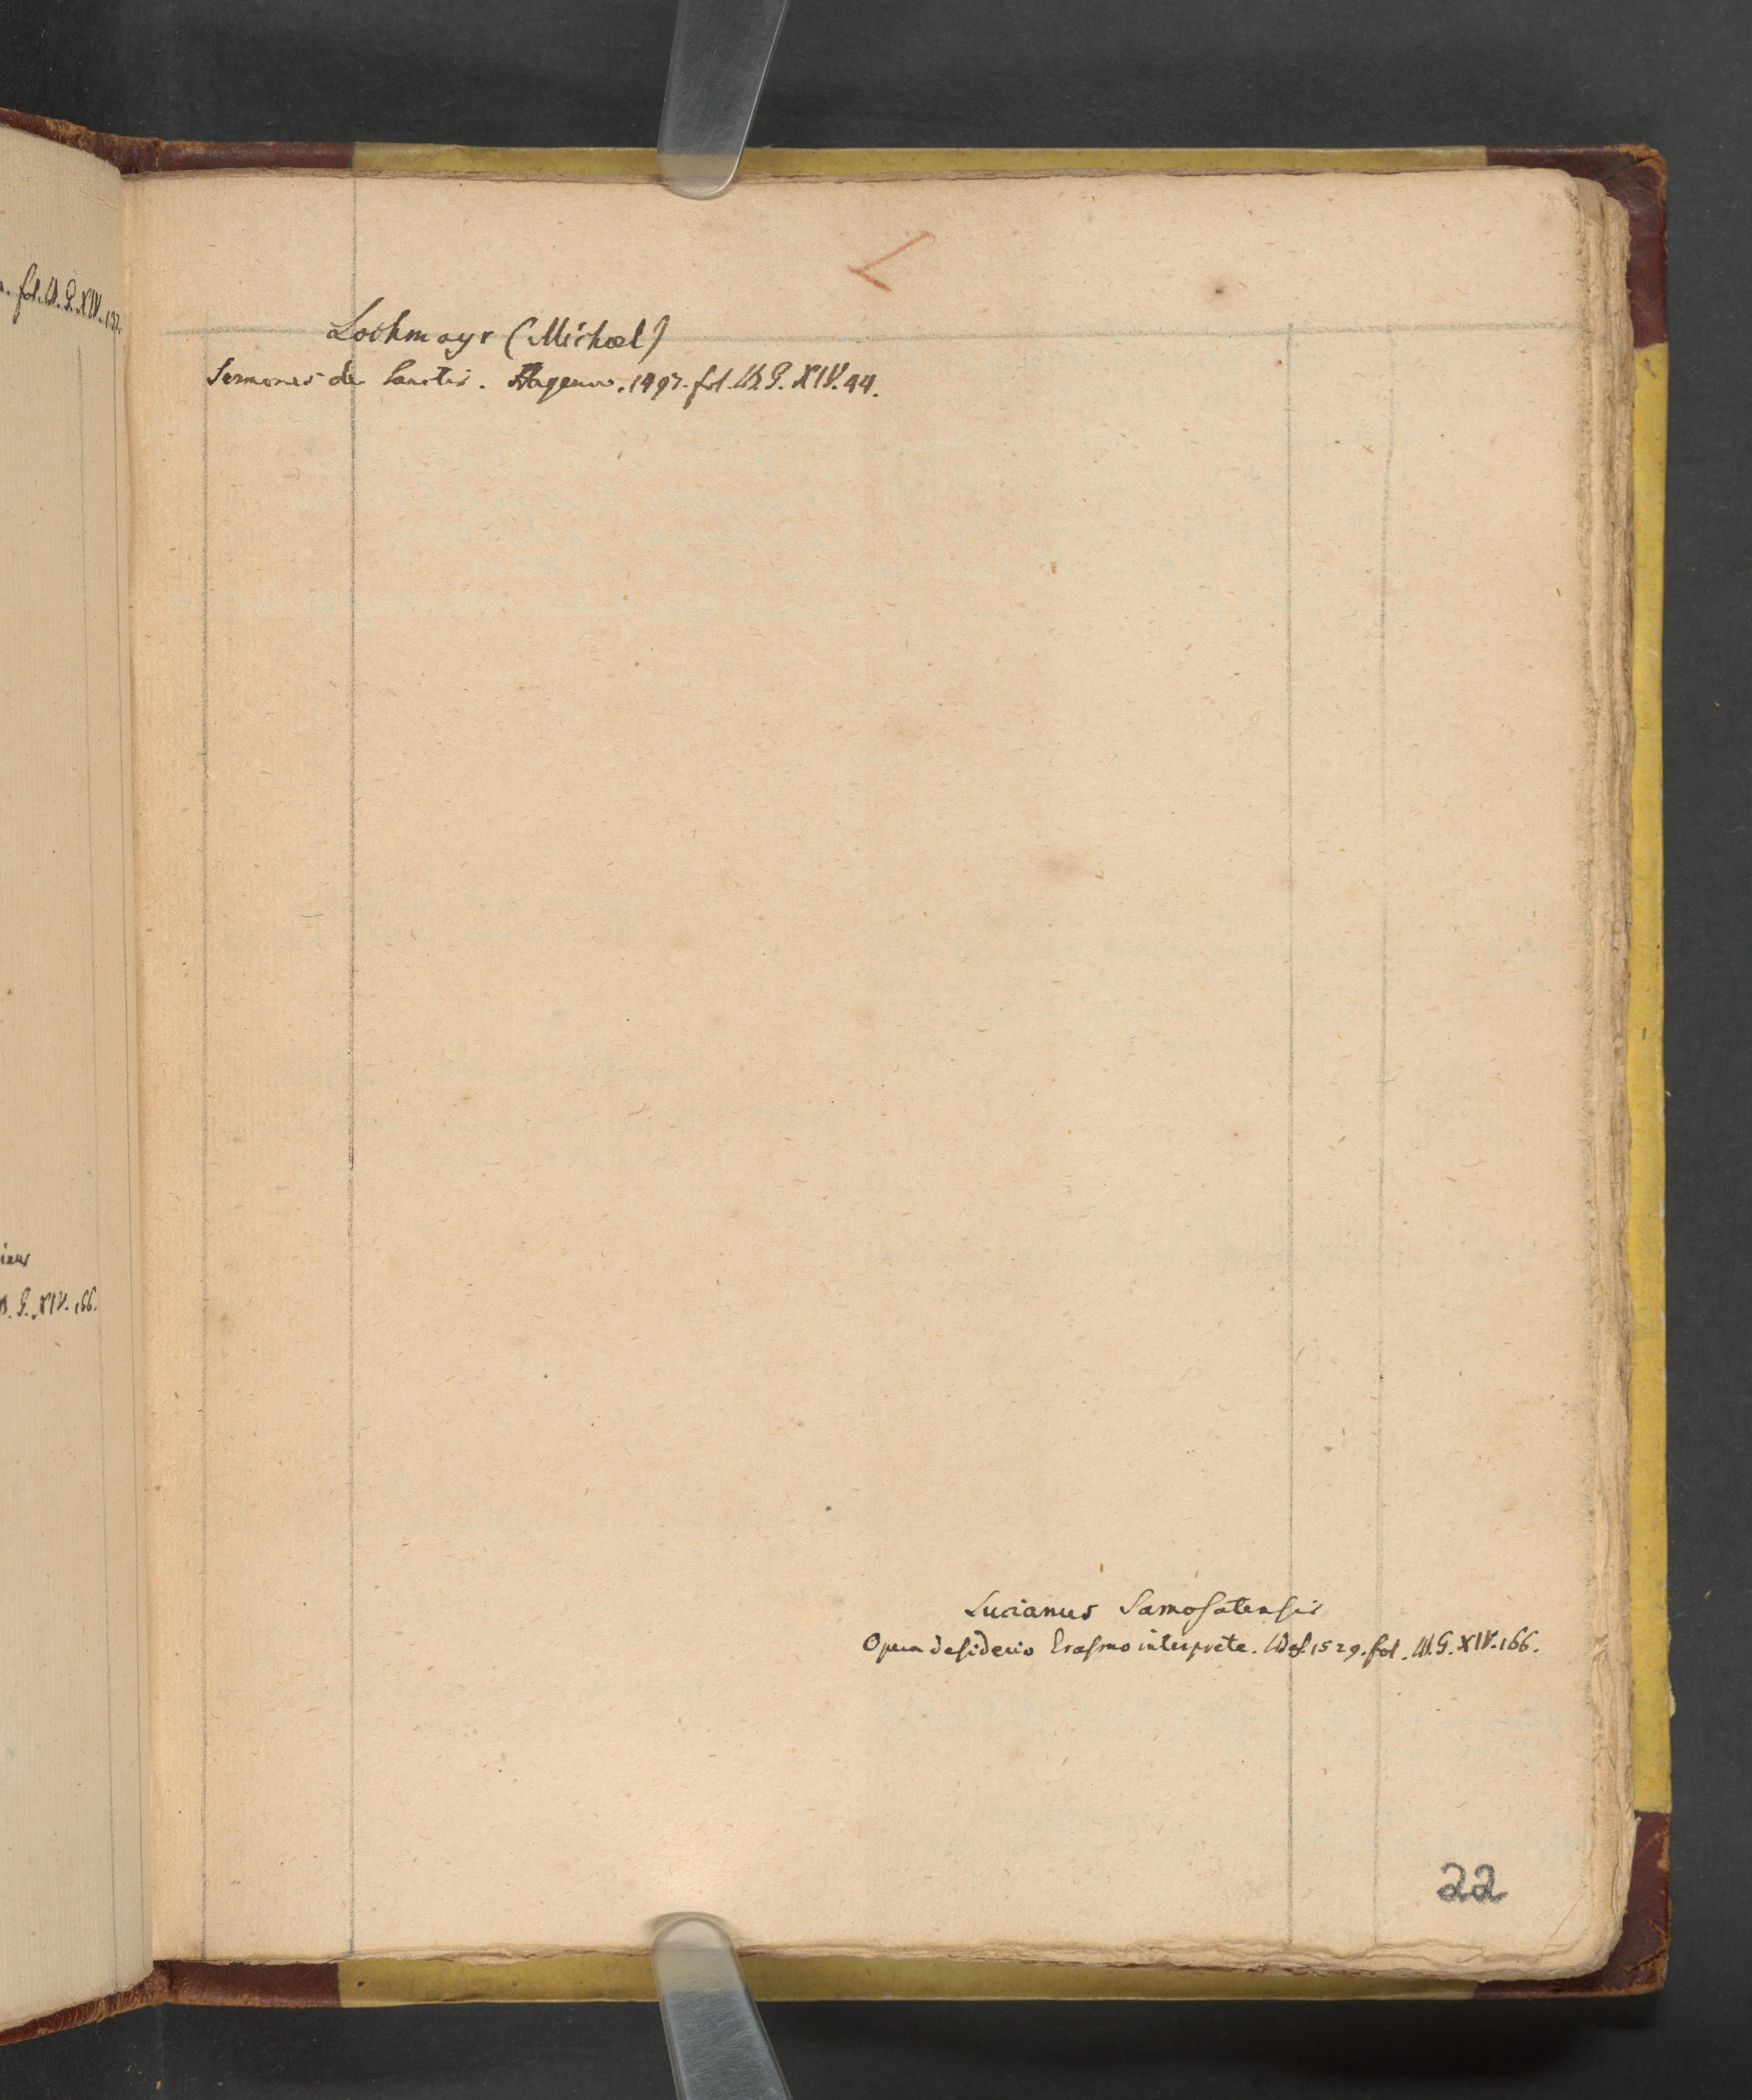 . fol. W. G. XIV. 197.
inus
W. G. XIV. 166.
L
Lochmayr (Michael)
Sermones de Sanctis. Hagenov. 1497. fol. W. G. XIV. 44.
Lucianus Samosatensis
Opera desiderio Erasmo interprete. 1529. fol. W. G. XIV. 166.
22